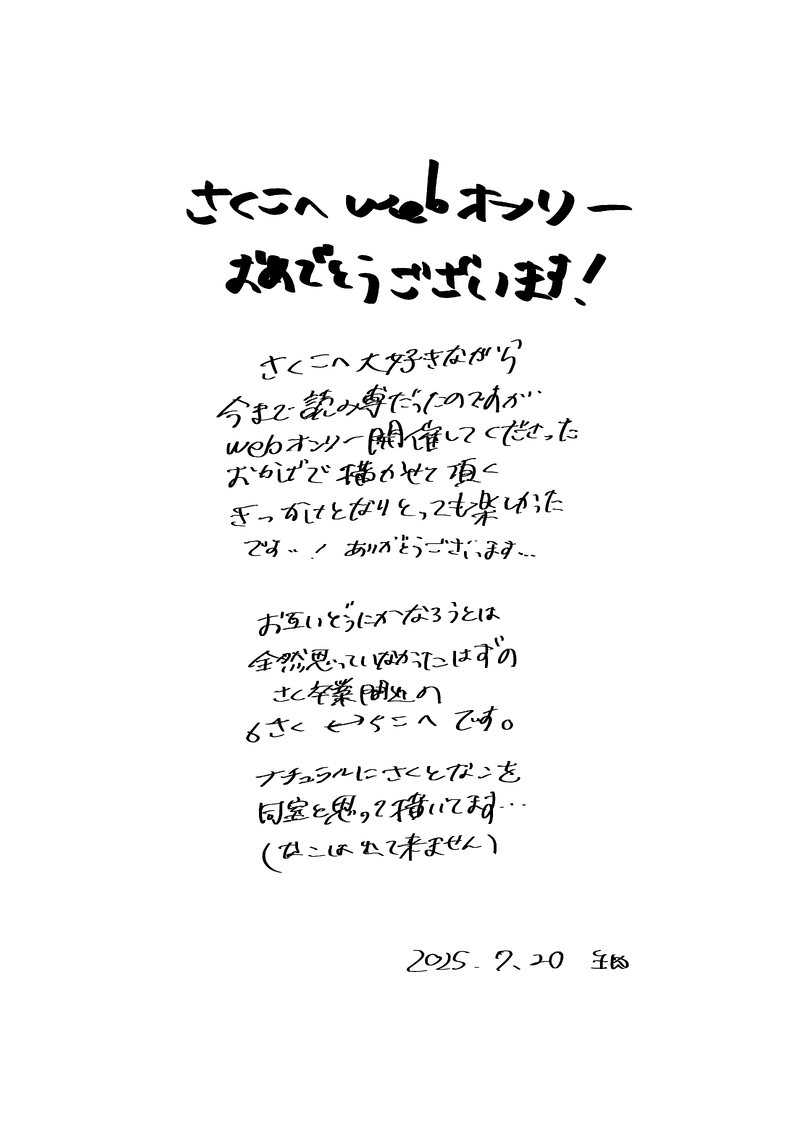 さくこへwebオンリー
おめでとうございます!
さくこへ大好きながら
今まで読み専だったのですが…
webオンリー開催してくださった
おかげで描かせて頂く
きっかけとなりとっても楽しかった
です…! ありがとうございます…
お互いどうにかなろうとは
全然思っていなかったはずの
さく卒業間近の
6さく ↔ 5こへ です。
ナチュラルにさくとなこを
同室と思って描いてます…
(なこは出て来ません)
2025.7.20